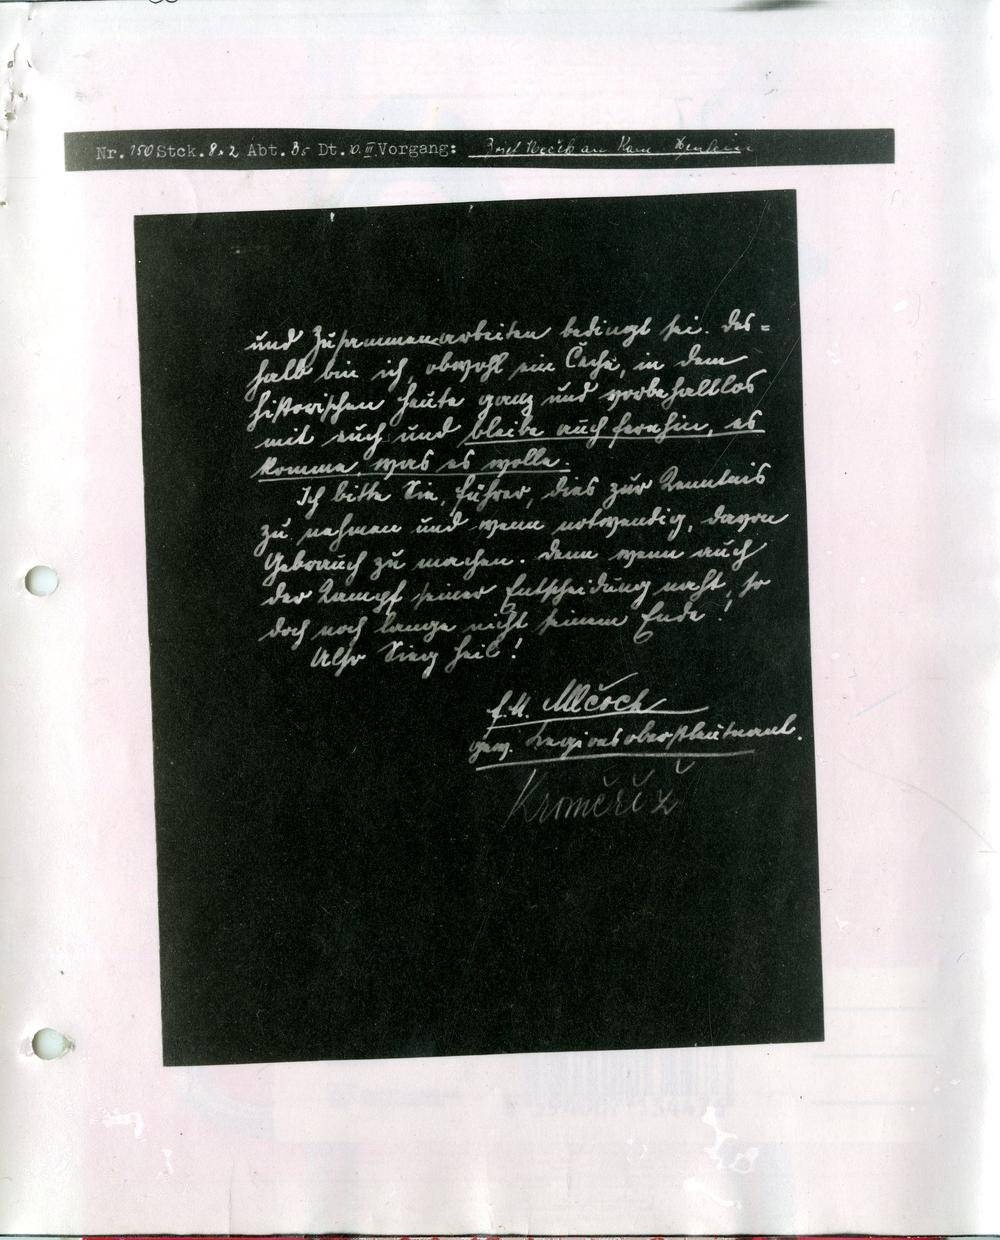 Nr. 150 Stck. 8.2 Abt. Dt. Vorgang: Brief an Henlein
und Zusammenarbeiten bedingt sei. Des=
halb bin ich, obwohl ein Čeche, in dem
historischen Heute ganz und vorbehaltlos
mit euch und bleibe auch fernhin, es
komme, was es wolle.
Ich bitte Sie, Führer, dies zur Kenntnis
zu nehmen und wenn notwendig, davon
Gebrauch zu machen. Denn wenn auch
der Kampf seiner Entscheidung naht, so
doch noch lange nicht seinem Ende!
Also Sieg Heil!
Mlčoch
gew. Legionsoberstleutnant.
Kroměříž